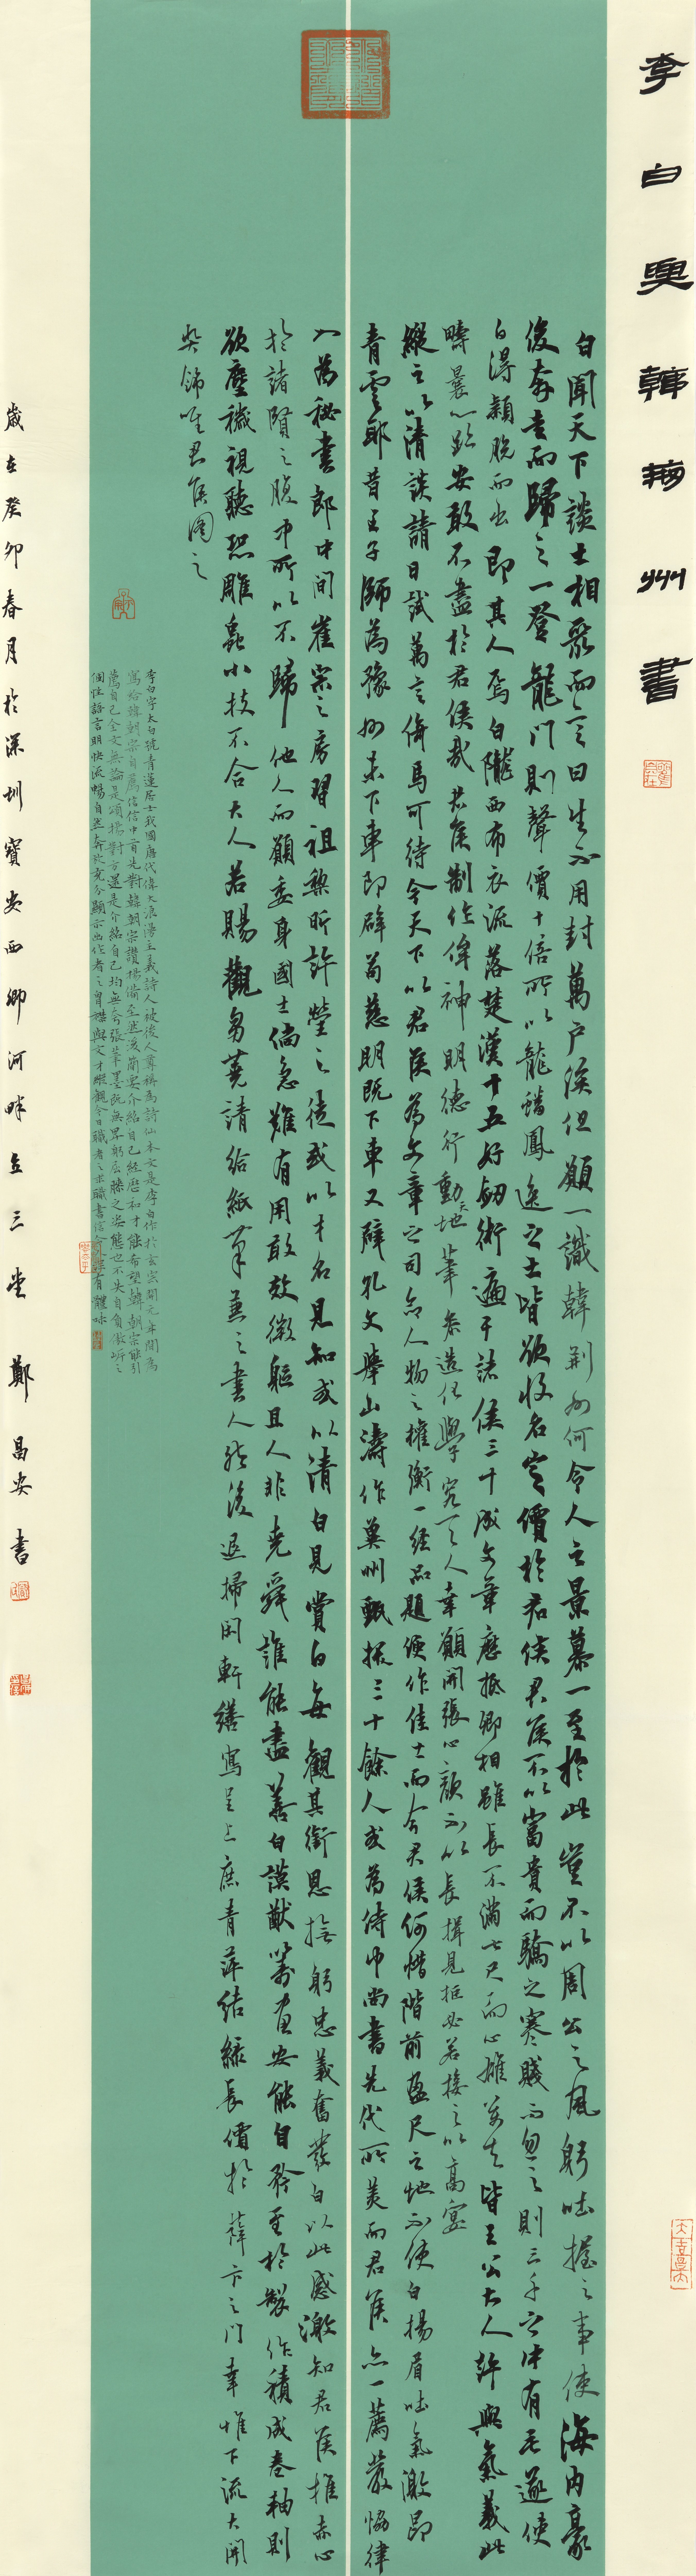 李白與韓荊州書
白聞天下談士相聚而言曰生不用封萬戶侯但願一識韓荊州何令人之景慕一至於此豈不以周公之風躬吐握之事使海內豪
俊奔走而歸之一登龍門則聲價十倍所以龍蟠鳳逸之士皆欲收名定價於君侯君侯不以富貴而驕之寒賤而忽之則三千之中有毛遂使
白得穎脫而出即其人焉白隴西布衣流落楚漢十五好劍術遍干諸侯三十成文章歷抵卿相雖長不滿七尺而心雄萬夫皆王公大人許與氣義此
疇曩心跡安敢不盡於君侯哉君侯制作侔神明德行動天地筆參造化學究天人幸願開張心顏不以長揖見拒必若接之以高宴
縱之以清談請日試萬言倚馬可待今天下以君侯為文章之司命人物之權衡一經品題便作佳士而今君侯何惜階前盈尺之地不使白揚眉吐氣激昂
青雲耶昔王子師為豫州未下車即辟荀慈明既下車又辟孔文舉山濤作冀州甄拔三十餘人或為侍中尚書先代所美而君侯亦一薦嚴協律
入為秘書郎中間崔宗之房習祖黎昕許瑩之徒或以才名見知或以清白見賞白每觀其銜恩撫躬忠義奮發白以此感激知君侯推赤心
於諸賢之腹中所以不歸他人而願委身國士倘急難有用敢效微軀且人非堯舜誰能盡善白謨猷籌畫安能自矜至於製作積成卷軸則
欲塵穢視聽恐雕蟲小技不合大人若賜觀芻蕘請給紙筆兼之書人然後退掃閑軒繕寫呈上庶青萍結綠長價於薛卞之門幸惟下流大開
獎飾唯君侯圖之
李白字太白號青蓮居士我國唐代偉大浪漫主義詩人被後人尊稱為詩仙本文是李白作於玄宗開元年間為
寫給韓朝宗自薦信信中首先對韓朝宗讚揚備至然後簡要介紹自己經歷和才能希望韓朝宗能引
薦自己全文無論是頌揚對方還是介紹自己均無夸張筆墨既無卑躬屈膝之姿態也不失自負傲岸之
個性語言明快流暢自然奔放充分顯示出作者之胸襟與文才縱觀今日職者之求職書信有體味
歲在癸卯春月於深圳寶安西鄉河畔立三堂鄭昌安書